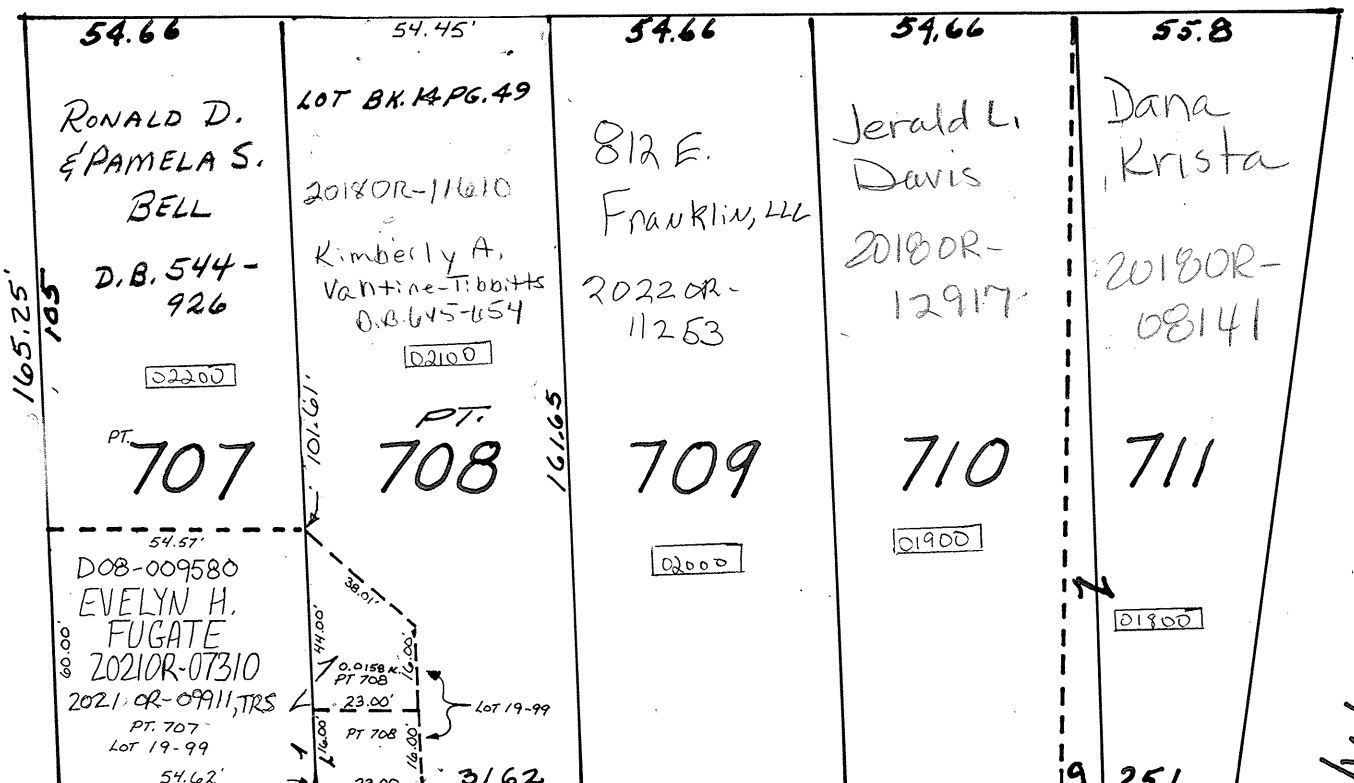 54.66
RONALD D.
& PAMELA S.
BELL
D.B. 544-
926
02200
PT. 707
165.25'
105
54.57'
D08-009580
EVELYN H.
FUGATE
2021OR-07310
2021 OR-09911, TRS
PT. 707
LOT 19-99
60.00'
54.62'
54.45'
LOT BK. 14 PG. 49
2018OR-11610
Kimberly A.
Vantine-Tibbitts
D.B. 645-654
02100
PT.
708
101.61'
38.01'
44.00'
16.00'
PT 708
23.00'
LOT 19-99
PT 708
16.00'
16.00'
23.00
3162
161.65
54.66
812 E.
Franklin, LLC
2022OR-
11253
709
02000
54.66
Jerald L.
Davis
2018OR-
12917
710
01900
55.8
Dana
Krista
2018OR-
08141
711
01800
9
251